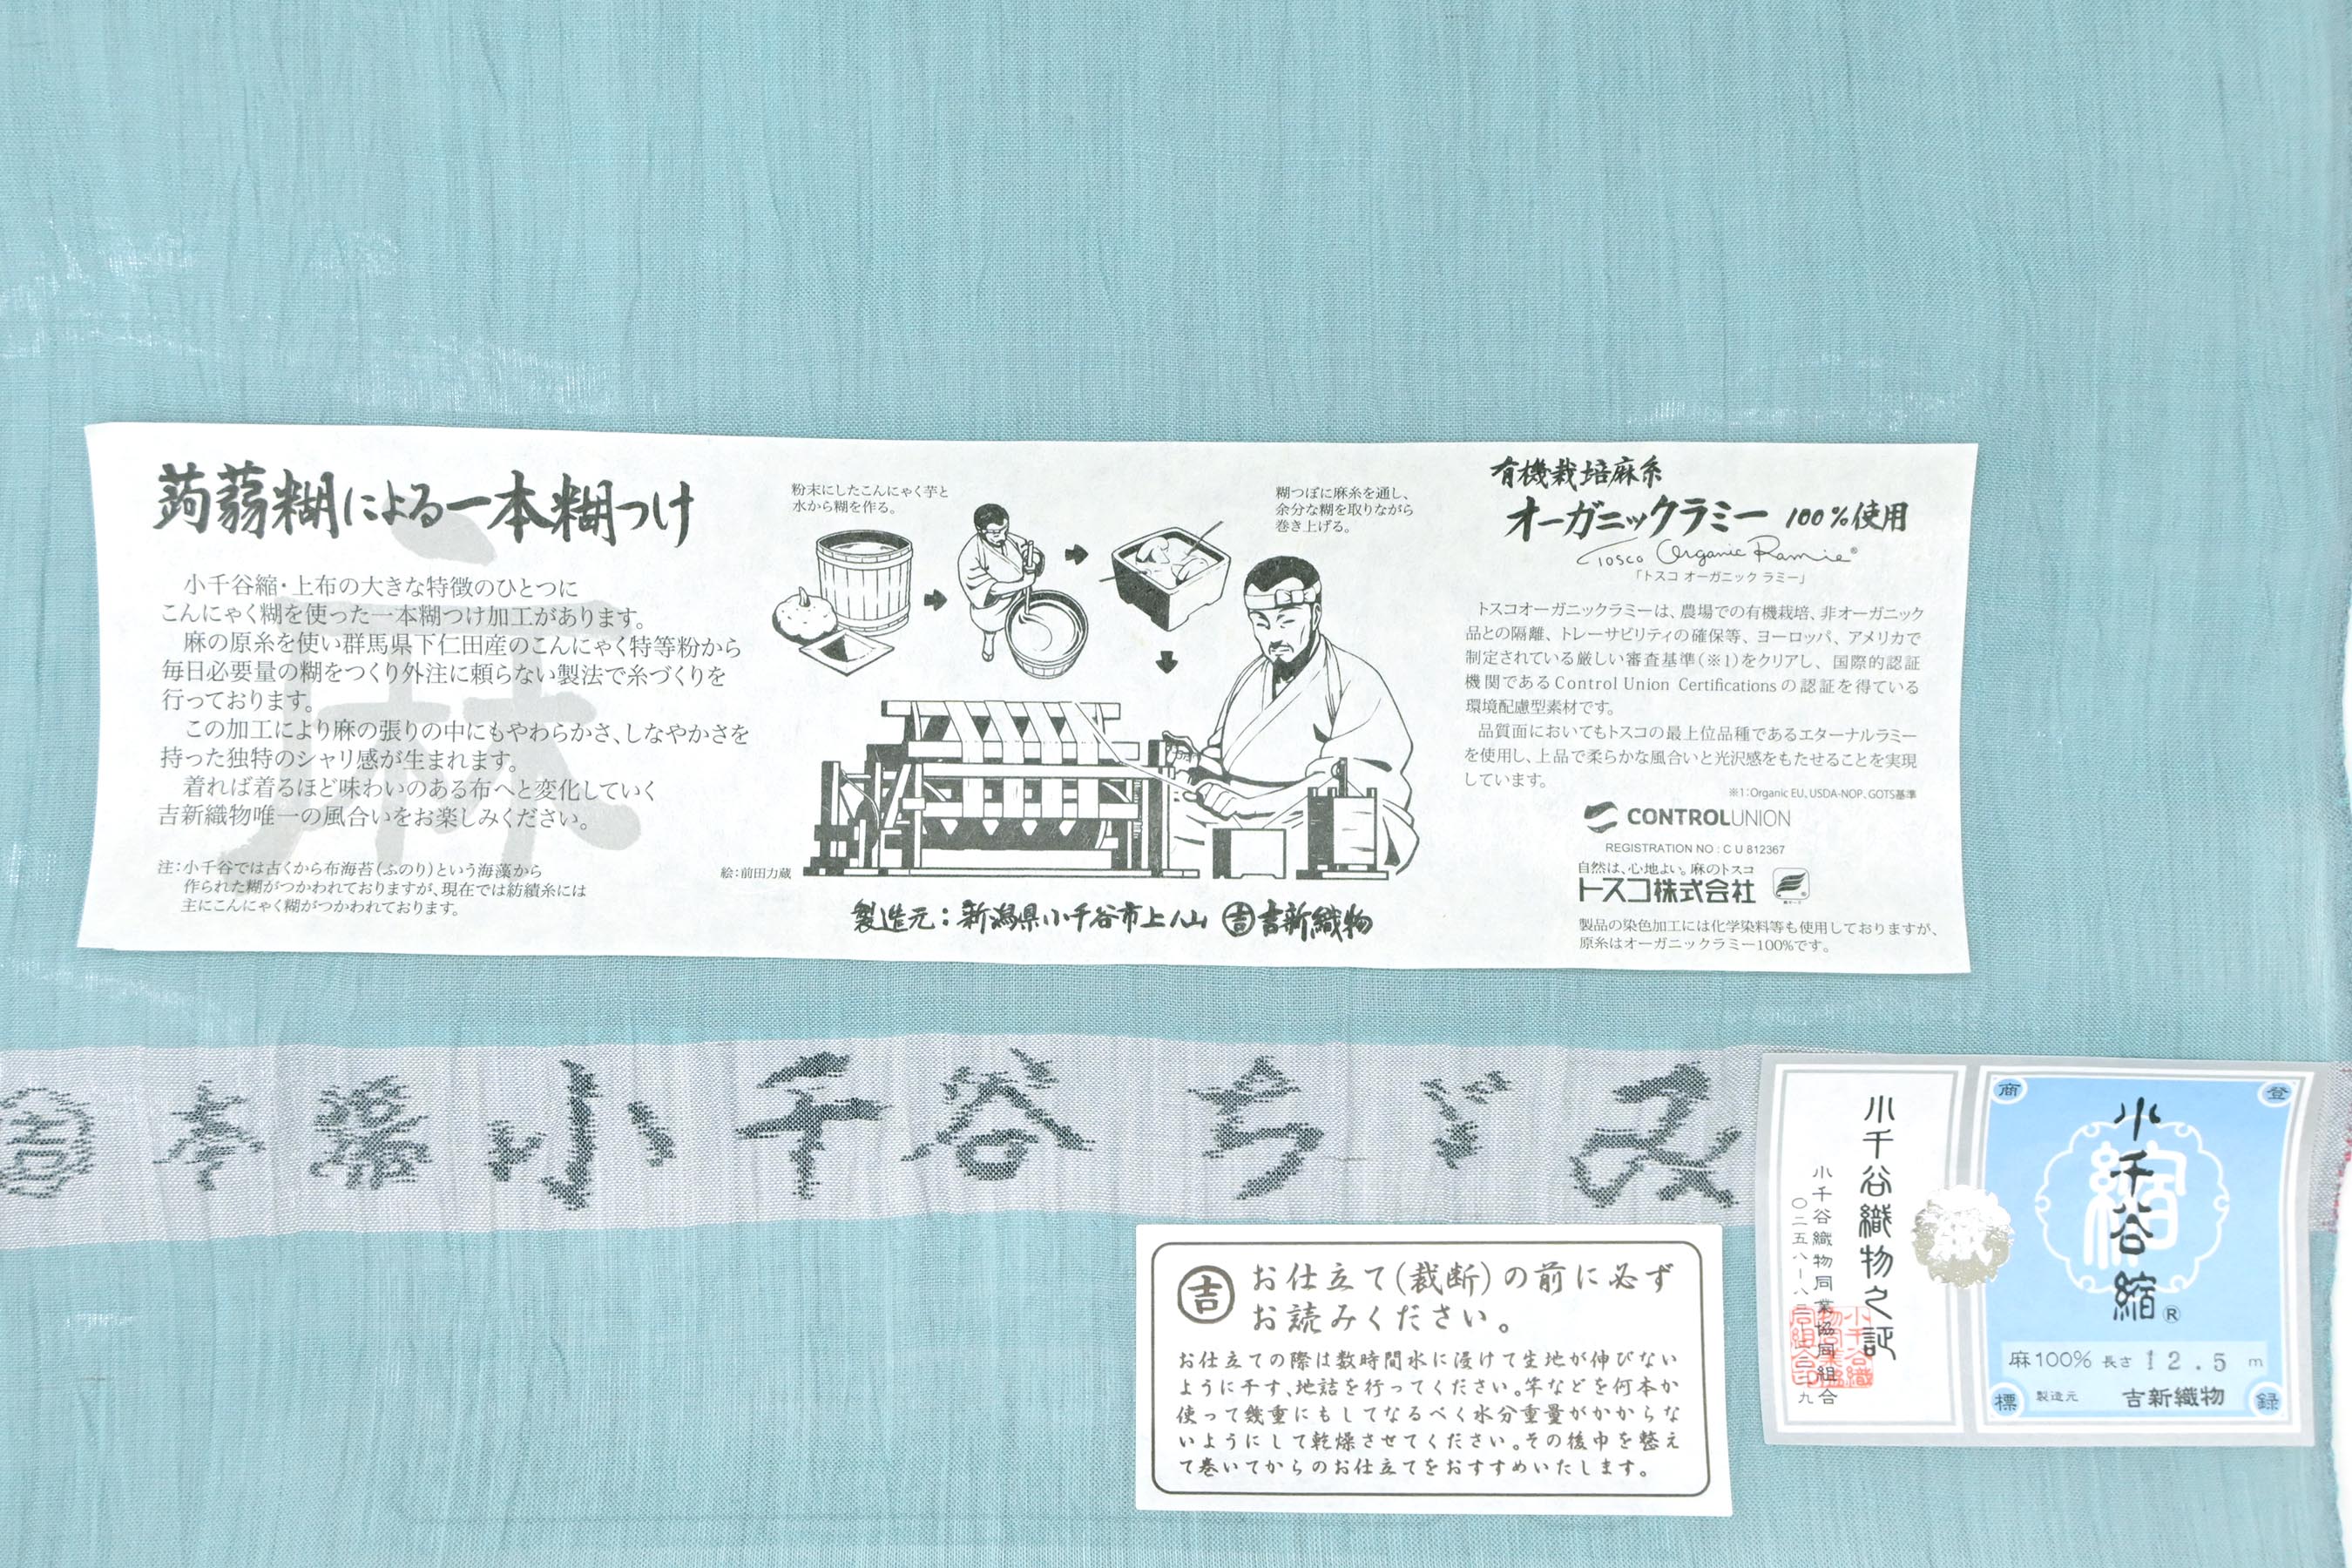 蒟蒻糊による一本糊つけ
小千谷縮・上布の大きな特徴のひとつに
こんにゃく糊を使った一本糊つけ加工があります。
麻の原糸を使い群馬県下仁田産のこんにゃく特等粉から
毎日必要量の糊をつくり外注に頼らない製法で糸づくりを
行っております。
この加工により麻の張りの中にもやわらかさ、しなやかさを
持った独特のシャリ感が生まれます。
着れば着るほど味わいのある布へと変化していく
吉新織物唯一の風合いをお楽しみください。
麻
注:小千谷では古くから布海苔(ふのり)という海藻から
作られた糊がつかわれておりますが、現在では紡績糸には
主にこんにゃく糊がつかわれております。
粉末にしたこんにゃく芋と
水から糊を作る。
糊つぼに麻糸を通し、
余分な糊を取りながら
巻き上げる。
絵:前田力蔵
製造元:新潟県小千谷市上ノ山 吉 吉新織物
有機栽培麻糸
オーガニックラミー 100%使用
Tosco Organic Ramie®
「トスコ オーガニック ラミー」
トスコオーガニックラミーは、農場での有機栽培、非オーガニック
品との隔離、トレーサビリティの確保等、ヨーロッパ、アメリカで
制定されている厳しい審査基準(※1)をクリアし、国際的認証
機関であるControl Union Certificationsの認証を得ている
環境配慮型素材です。
品質面においてもトスコの最上位品種であるエターナルラミー
を使用し、上品で柔らかな風合いと光沢感をもたせることを実現
しています。
※1:Organic EU、USDA-NOP、GOTS基準
CONTROLUNION
REGISTRATION NO : C U 812367
自然は、心地よい。麻のトスコ
トスコ株式会社
製品の染色加工には化学染料等も使用しておりますが、
原糸はオーガニックラミー100%です。
吉 本場小千谷ちゞみ
吉 お仕立て(裁断)の前に必ず
お読みください。
お仕立ての際は数時間水に浸けて生地が伸びない
ように干す、地詰を行ってください。竿などを何本か
使って幾重にもしてなるべく水分重量がかからな
いようにして乾燥させてください。その後巾を整え
て巻いてからのお仕立てをおすすめいたします。
小千谷織物之証
小千谷織物同業協同組合
登
録
商
標
縮
小千谷縮®
麻100% 長さ 12.5 m
製造元 吉新織物